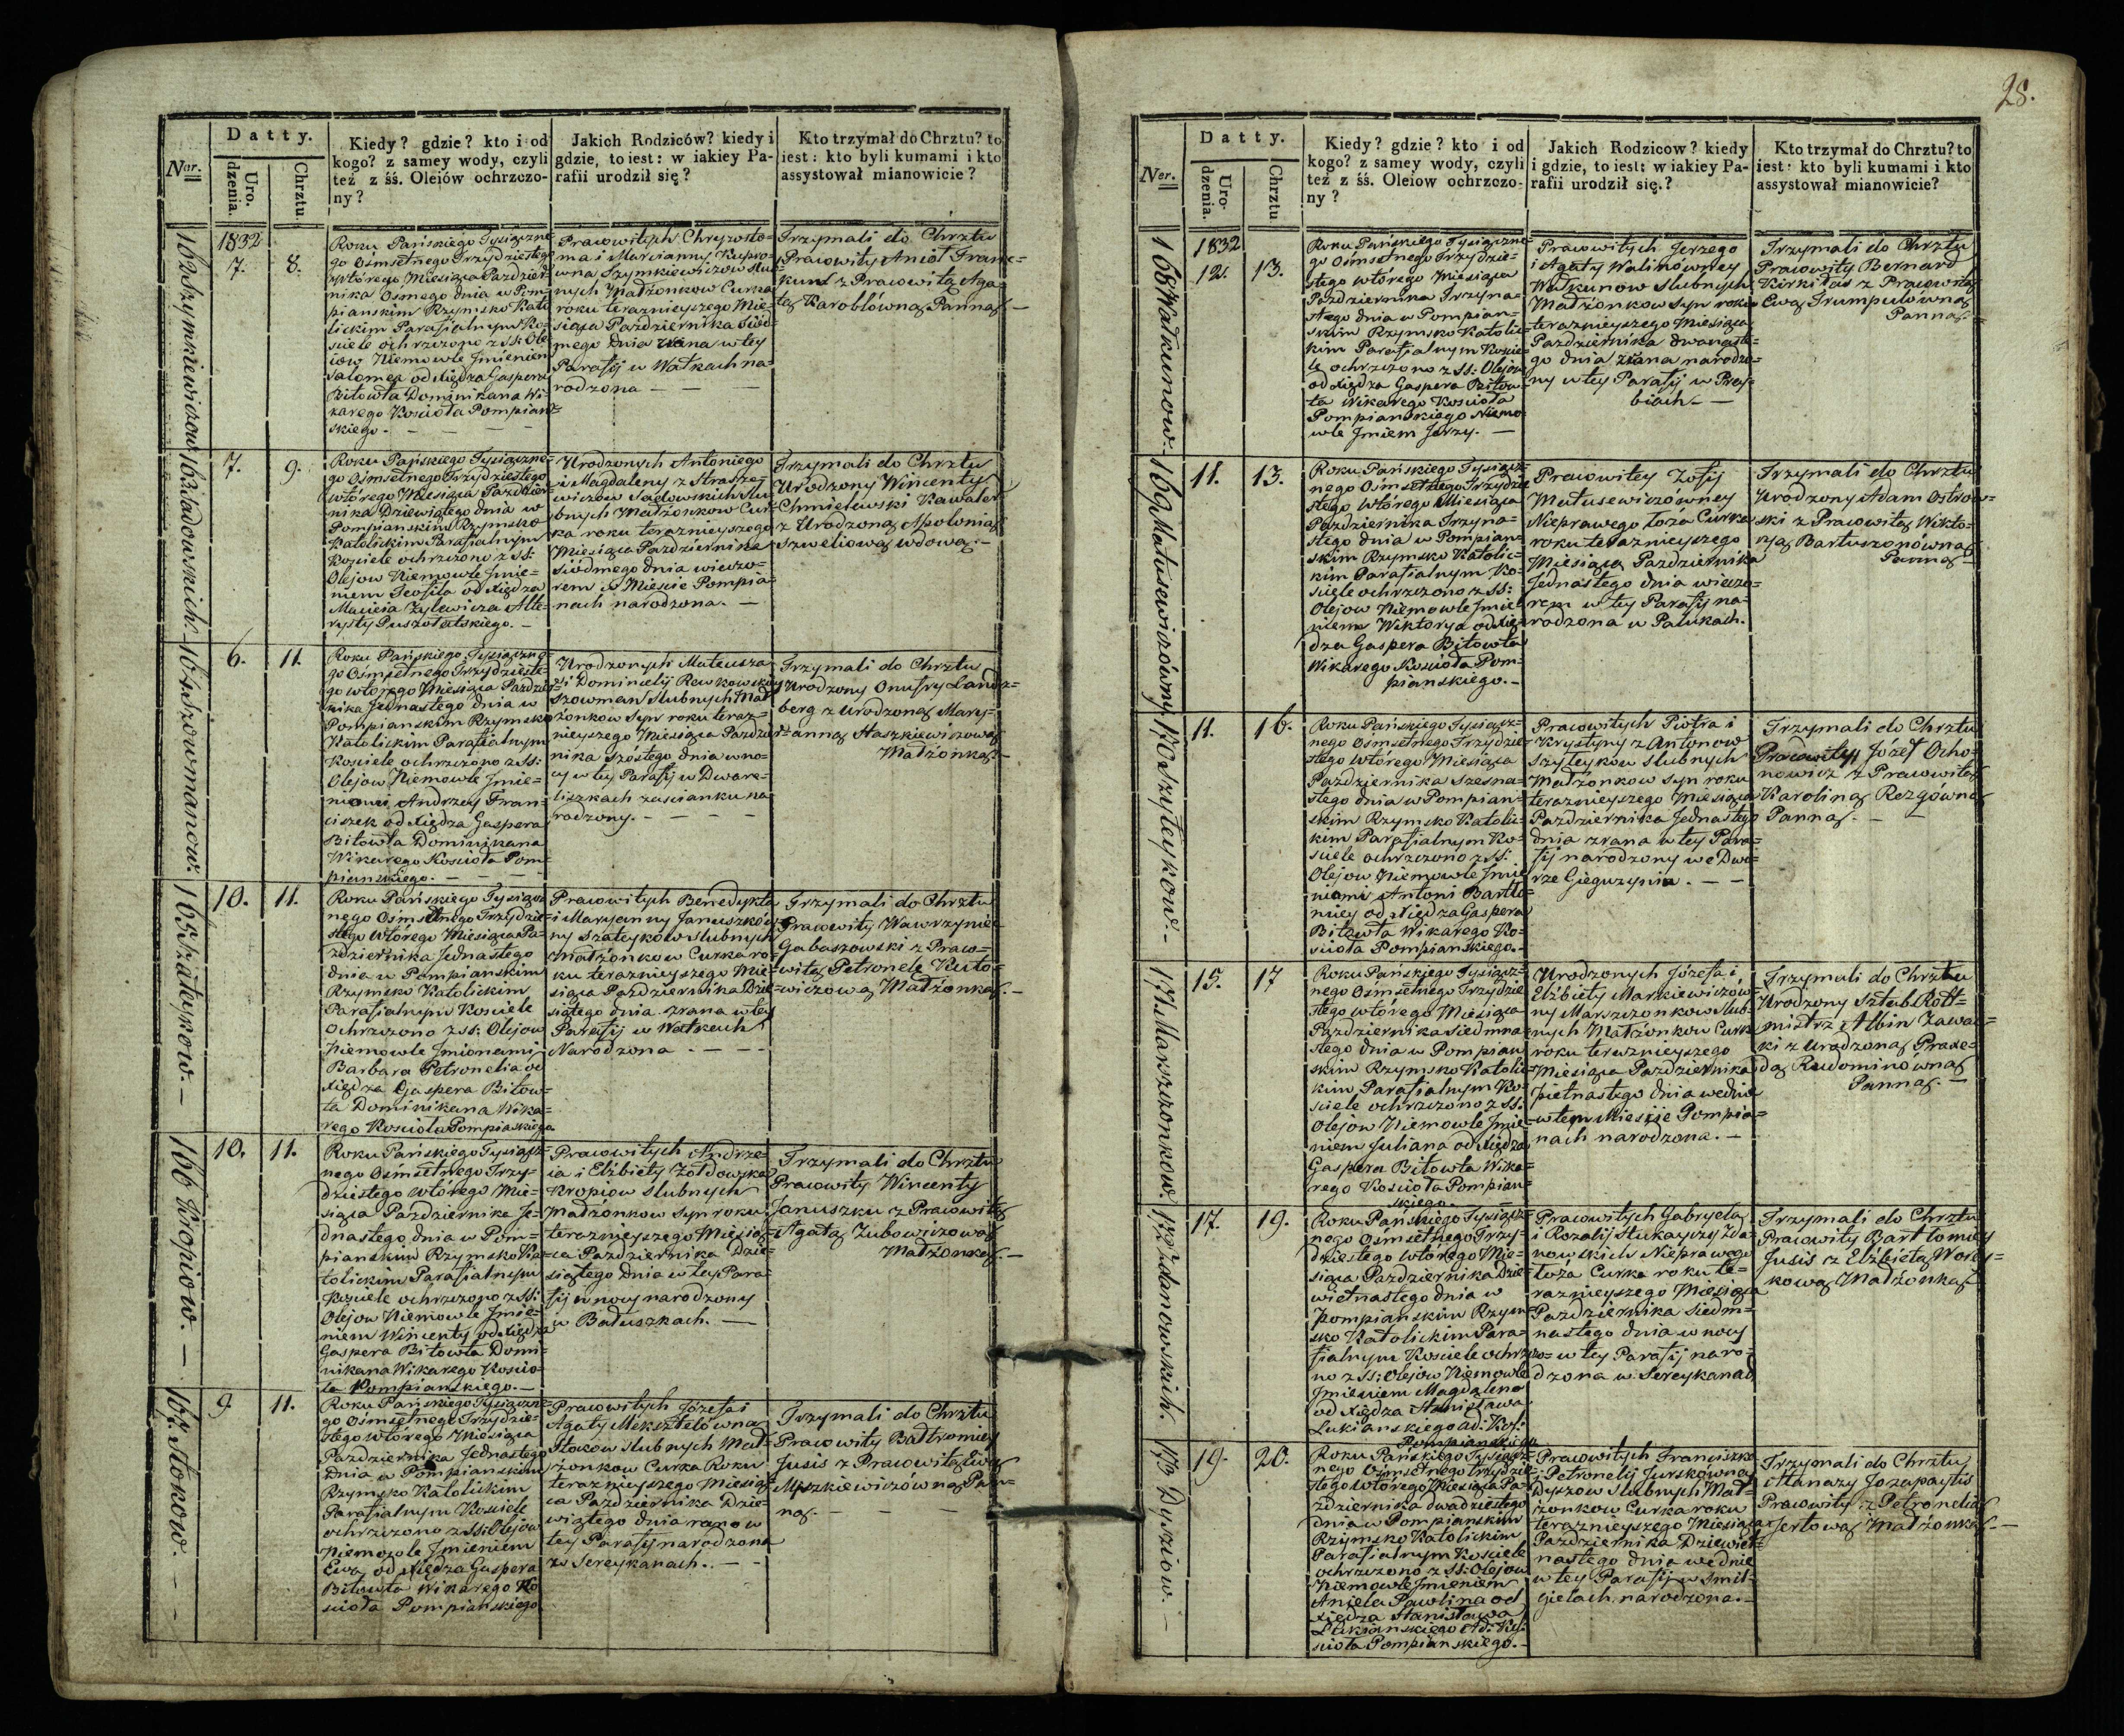 28.
Datty.
Ner.
Uro.
dzenia.
Chrztu.
Kiedy? gdzie? kto i od
kogo? z samey wody, czyli
też z śś. Olejów ochrzczo-
ny?
Jakich Rodziców? kiedy i
gdzie, to iest: w iakiey Pa-
rafii urodził się?
Kto trzymał do Chrztu? to
iest: kto byli kumami i kto
assystował mianowicie?
162 Szymkiewiczow
1832
7.
8.
Roku Pańskiego Tysiączne-
go Osmsetnego Trzydziestego
wtórego Miesiąca Paździer-
nika Osmego dnia w Pom-
pianskim Rzymsko Kato
lickim Parafialnym Ko-
sciele ochrzczono z SS: Ole
iow Niemowle Jmieniem
Salomea od Xiędza Gaspera
Bitowta Dominikana Wi-
karego Kościoła Pompian-
skiego.
Pracowitych Chryzosto-
ma i Marcianny
Szymkiewiczow Slu-
bnych Małżonkow Curka
roku teraznieyszego Mie-
siąca Października Siód-
mego dnia zrana w tey
Parafij w Wałkach na-
rodzona
Trzymali do Chrztu
Pracowity Anioł
z Pracowitą Aga-
tą Karoblówną Panną
163 Sadowskich.
7.
9.
Roku Pańskiego Tysiączne-
go Osmsetnego Trzydziestego
wtórego Miesiąca Paździer-
nika Dziewiątego dnia w
Pompianskim Rzymsko
Katolickim Parafialnym
Kosciele ochrzczono z SS:
Olejow Niemowle Jmie-
niem Teofila od Xiędza
Macieia Zylewicza Alta-
rysty Puszołatskiego.
Urodzonych Antoniego
i Magdaleny z Strasze-
wiczow Sadowskich Slu-
bnych Małżonkow Cur-
ka roku teraznieyszego
Miesiąca Października
Siódmego dnia wieczo-
rem w Miescie Pompia-
nach narodzona.
Trzymali do Chrztu
Urodzony Wincenty
Chmielewski Kawaler
z Urodzoną Apolonią
Szweliową wdową.
164 Szowmanow.
6.
11.
Roku Pańskiego Tysiączne-
go Osmsetnego Trzydzieste-
go wtorego Miesiąca Paździer-
nika Jednastego dnia w
Pompianskim Rzymsko
Katolickim Parafialnym
Kosciele ochrzczono z SS:
Olejow Niemowle Jmie-
niami Andrzey Fran-
ciszek od Xiędza Gaspera
Bitowta Dominikana
Wikarego Kościoła Pom-
pianskiego.
Urodzonych Mateusza
i Dominicelij Rewkowskiey
Szowman Slubnych Mał-
żonkow Syn roku teraz-
nieyszego Miesiąca Paździer-
nika Szóstego dnia w no-
cy w tey Parafij w Dwore-
liszkach zascianku na
rodzony.
Trzymali do Chrztu
Urodzony Onufry Lands-
berg z Urodzoną Mary-
anną Staszkiewiczową
Małżonką.
165 Szateykow.
10.
11.
Roku Pańskiego Tysiącz-
nego Osmsetnego Trzydzie-
stego wtórego Miesiąca Pa-
ździernika Jednastego
dnia w Pompianskim
Rzymsko Katolickim
Parafialnym Kosciele
ochrzczono z SS: Olejow
Niemowle Jmionami
Barbara Petronelia od
Xiędza Gaspera Bitow-
ta Dominikana Wika-
rego Kościoła Pompianskiego
Pracowitych Benedykta
i Maryanny Januszków-
ny Szateyków Slubnych
Małżonkow Curka ro-
ku teraznieyszego Mie-
siąca Października Dzie-
siątego dnia zrana w tey
Parafij w Wałkach
Narodzona
Trzymali do Chrztu
Pracowity Wawrzyniec
Gabaszowski z Praco-
witą Petronelą Kuto-
wiczową Małżonką.
166 Kropiow.
10.
11.
Roku Pańskiego Tysiącz-
nego Osmsetnego Trzy-
dziestego wtórego Mie-
siąca Października Je-
dnastego dnia w Pom-
pianskim Rzymsko Ka-
tolickim Parafialnym
Kosciele ochrzczono z SS:
Olejow Niemowle Jmie-
niem Wincenty od Xiędza
Gaspera Bitowta Domi-
nikana Wikarego Koscio-
ła Pompianskiego.
Pracowitych Andrze-
ia i Elżbiety Zołdowska
Kropiow Slubnych
Małżonkow Syn roku
teraznieyszego Miesią-
ca Października Dzie-
siątego dnia w tey Para-
fij w nocy narodzony
w Bałuszkach.
Trzymali do Chrztu
Pracowity Wincenty
Januszka z Pracowitą
Agatą Zubowiczową
Małżonką.
167. Stokow.
9
11.
Roku Pańskiego Tysiączne-
go Osmsetnego Trzydzie-
stego wtórego Miesiąca
Października Jednastego
dnia w Pompianskim
Rzymsko Katolickim
Parafialnym Kosciele
ochrzczono z SS: Olejow
Niemowle Jmieniem
Ewa od Xiędza Gaspera
Bitowta Wikarego Ko
scioła Pompianskiego
Pracowitych Józefa i
Agaty Meksztelówna
Stokow Slubnych Mał-
żonkow Curka Roku
teraznieyszego Miesią-
ca Października Dzie-
wiątego dnia rano w
tey Parafij narodzona
w Sereykanach.
Trzymali do Chrztu
Pracowity Bałtromiey
Jusis z Pracowitą Ewą
Myszkiewiczówną Pan-
ną.
Datty.
Ner.
Uro-
dzenia.
Chrztu
Kiedy? gdzie? kto i od
kogo? z samey wody, czyli
też z śś. Oleiow ochrzczo-
ny?
Jakich Rodzicow? kiedy
i gdzie, to iest: w iakiey Pa-
rafii urodził się.?
Kto trzymał do Chrztu? to
iest: kto byli kumami i kto
assystował mianowicie?
168 Wałkunow.
1832
12.
13.
Roku Pańskiego Tysiączne-
go Osmsetnego Trzydzie-
stego wtórego Miesiąca
Października Trzyna-
stego dnia w Pompian-
skim Rzymsko Katolic-
kim Parafialnym Koscie-
le ochrzczono z SS: Olejow
od Xiędza Gaspera Bitow-
ta Wikarego Kościoła
Pompianskiego Niemo-
wle Jmiem Jerzy.
Pracowitych Jerzego
i Agaty Walinowney
Wałkunow Slubnych
Małżonkow Syn roku
teraznieyszego Miesiąca
Października dwónaste-
go dnia zrana narodzo-
ny w tey Parafij w Pray-
biach
Trzymali do Chrztu
Pracowity Bernard
Kirkiłas z Pracowitą
Ewą Trumpulówną
Panną.
169 Matusewiczówny
11.
13.
Roku Pańskiego Tysiącz-
nego Osmsetnego Trzydzie
stego wtórego Miesiąca
Października Trzyna-
stego dnia w Pompian-
skim Rzymsko Katolic-
kim Parafialnym Ko-
sciele ochrzczono z SS:
Olejow Niemowle Jmie-
niem Wiktorya od Xię-
dza Gaspera Bitowta
Wikarego Kościoła Pom-
pianskiego.
Pracowitey Zofij
Matusewiczówney
Nieprawego łoża Curka
roku teraznieyszego
Miesiąca Października
Jednastego dnia wieczo-
rem w tey Parafij na-
rodzona w Pałukach.
Trzymali do Chrztu
Urodzony Adam Ostrow-
ski z Pracowitą Wikto-
ryą Bartuszonówną
Panną
170 Szyłeykow.
11.
16.
Roku Pańskiego Tysiącz-
nego Osmsetnego Trzydzie-
stego wtórego Miesiąca
Października Szesna-
stego dnia w Pompian-
skim Rzymsko Katolic-
kim Parafialnym Ko-
sciele ochrzczono z SS:
Olejow Niemowle Jmie
niami Antoni Bartło-
miey od Xiędza Gaspera
Bitowta Wikarego Ko-
scioła Pompianskiego.
Pracowitych Piotra i
Krystyny z Antonow
Szyłeykow Slubnych
Małżonkow Syn roku
teraznieyszego Miesiąca
Października Jednastego
dnia zrana w tey Para-
fij narodzony we Dwo-
rze Gieguzynia.
Trzymali do Chrztu
Pracowity Józef Ocho-
nowicz z Pracowitą
Karoliną Rezgówną
Panną.
171. Marszonkow.
15.
17
Roku Pańskiego Tysiącz-
nego Osmsetnego Trzydzie
stego wtórego Miesiąca
Października Siedmna-
stego dnia w Pompian
skim Rzymsko Katolic-
kim Parafialnym Ko-
sciele ochrzczono z SS:
Olejow Niemowle Jmie-
niem Juliana od Xiędza
Gaspera Bitowta Wika-
rego Kościoła Pompian-
skiego.
Urodzonych Józefa i
Elżbiety Markiewiczów-
ny Marszonkow Slub-
nych Małżonkow Curka
roku teraznieyszego
Miesiąca Października
Pietnastego dnia wednie
w tem Miescie Pompia-
nach narodzona.
Trzymali do Chrztu
Urodzony Sztab Rott-
mistrz Albin Zawac-
ki z Urodzoną Praxe-
dą Radominówną
Panną.
172 Zdanowskich.
17.
19.
Roku Pańskiego Tysiącz-
nego Osmsetnego Trzy-
dziestego wtórego Mie-
siąca Października Dzie-
wietnastego dnia w
Pompianskim Rzym-
sko Katolickim Para-
fialnym Kosciele ochrzczo-
no z SS: Olejow Niemowle
Jmieniem Magdalena
od Xiędza Stanisława
Lukianskiego ad: Kos:
Pompianskiego
Pracowitych Gabryela
i Rozalij Zda
nowskich Nieprawego
łoża Curka roku te-
raznieyszego Miesiąca
Października Siedm-
nastego dnia w nocy
w tey Parafij naro-
dzona w Sereykanach
Trzymali do Chrztu
Pracowity Bartłomiey
Jusis z Elżbietą Worey-
kową Małżonką
173 Dyrziow.
19.
20.
Roku Pańskiego Tysiącz-
nego Osmsetnego Trzydzie-
stego wtórego Miesiąca Pa-
ździernika dwudziestego
dnia w Pompianskim
Rzymsko Katolickim
Parafialnym Kosciele
ochrzczono z SS: Olejow
Niemowle Jmieniem
Aniela Pawlina od
Xiędza Stanisława
Lukianskiego Ad: Ko-
scioła Pompianskiego.
Pracowitych Franciszka
i Petronelij Jurskówną
Dyrzow Slubnych Mał-
żonkow Curka roku
teraznieyszego Miesiąca
Października Dziewiet-
nastego dnia wednie
w tey Parafij w Smil-
gielach narodzona.
Trzymali do Chrztu
Atanazy Jozapaytis
Pracowity z Petronelią
Jertową Małżonką.